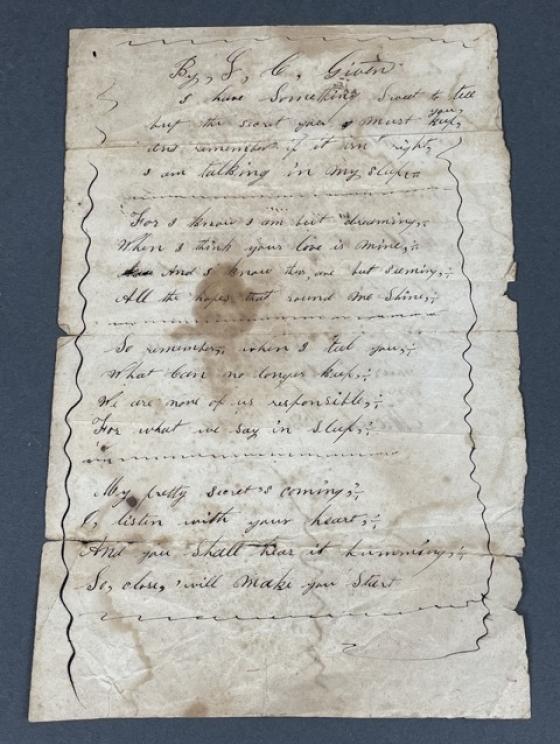 By, S, C, Given
I have Something Sweet to tell
you,
but the secret you must keep,
and remember if it isn't right,
I am talking in my sleep
For I know I am but dreaming,
When I think your love is mine,
And I know they are but seeming,
All the hopes that round me Shine,
So remember, when I tell you,
What I can no longer keep,
We are none of us responsible,
For what we say in sleep,
My pretty secret's coming,
O, listen with your heart,
And you shall hear it humming,
So, close, 'twill make you Start